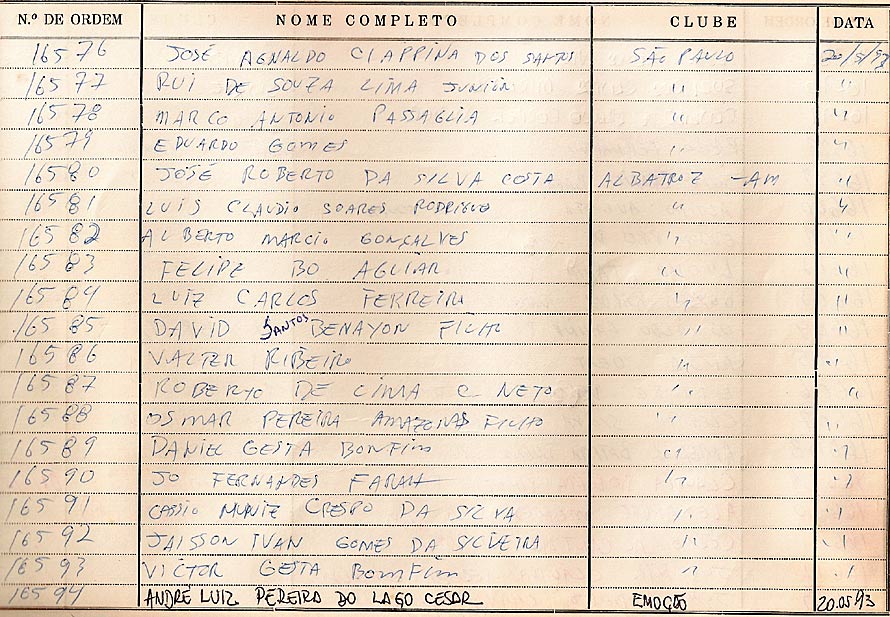 N.º DE ORDEM NOME COMPLETO CLUBE DATA
16576 JOSÉ AGNALDO CIAPPINA DOS SANTOS SÃO PAULO 20/5/93
16577 RUI DE SOUZA LIMA JUNIOR " "
16578 MARCO ANTONIO PASSAGLIA " "
16579 EDUARDO GOMES " "
16580 JOSÉ ROBERTO DA SILVA COSTA ALBATROZ -AM "
16581 LUIS CLAUDIO SOARES RODRIGUES " "
16582 ALBERTO MARCIO GONÇALVES " "
16583 FELIPE BO AGUIAR " "
16584 LUIZ CARLOS FERREIRA " "
16585 DAVID SANTOS BENAYON FILHO " "
16586 VALTER RIBEIRO " "
16587 ROBERTO DE LIMA C NETO " "
16588 OSMAR PEREIRA AMAZONAS FILHO " "
16589 DANIEL GESTA BONFIM " "
16590 JO FERNANDES FARAH " "
16591 CASSIO MUNIZ CRESPO DA SILVA " "
16592 JAISSON IVAN GOMES DA SILVEIRA " "
16593 VICTOR GESTA BOMFIM " "
16594 ANDRÉ LUIZ PEREIRA DO LAGO CESAR EMOÇÃO 20.05.93